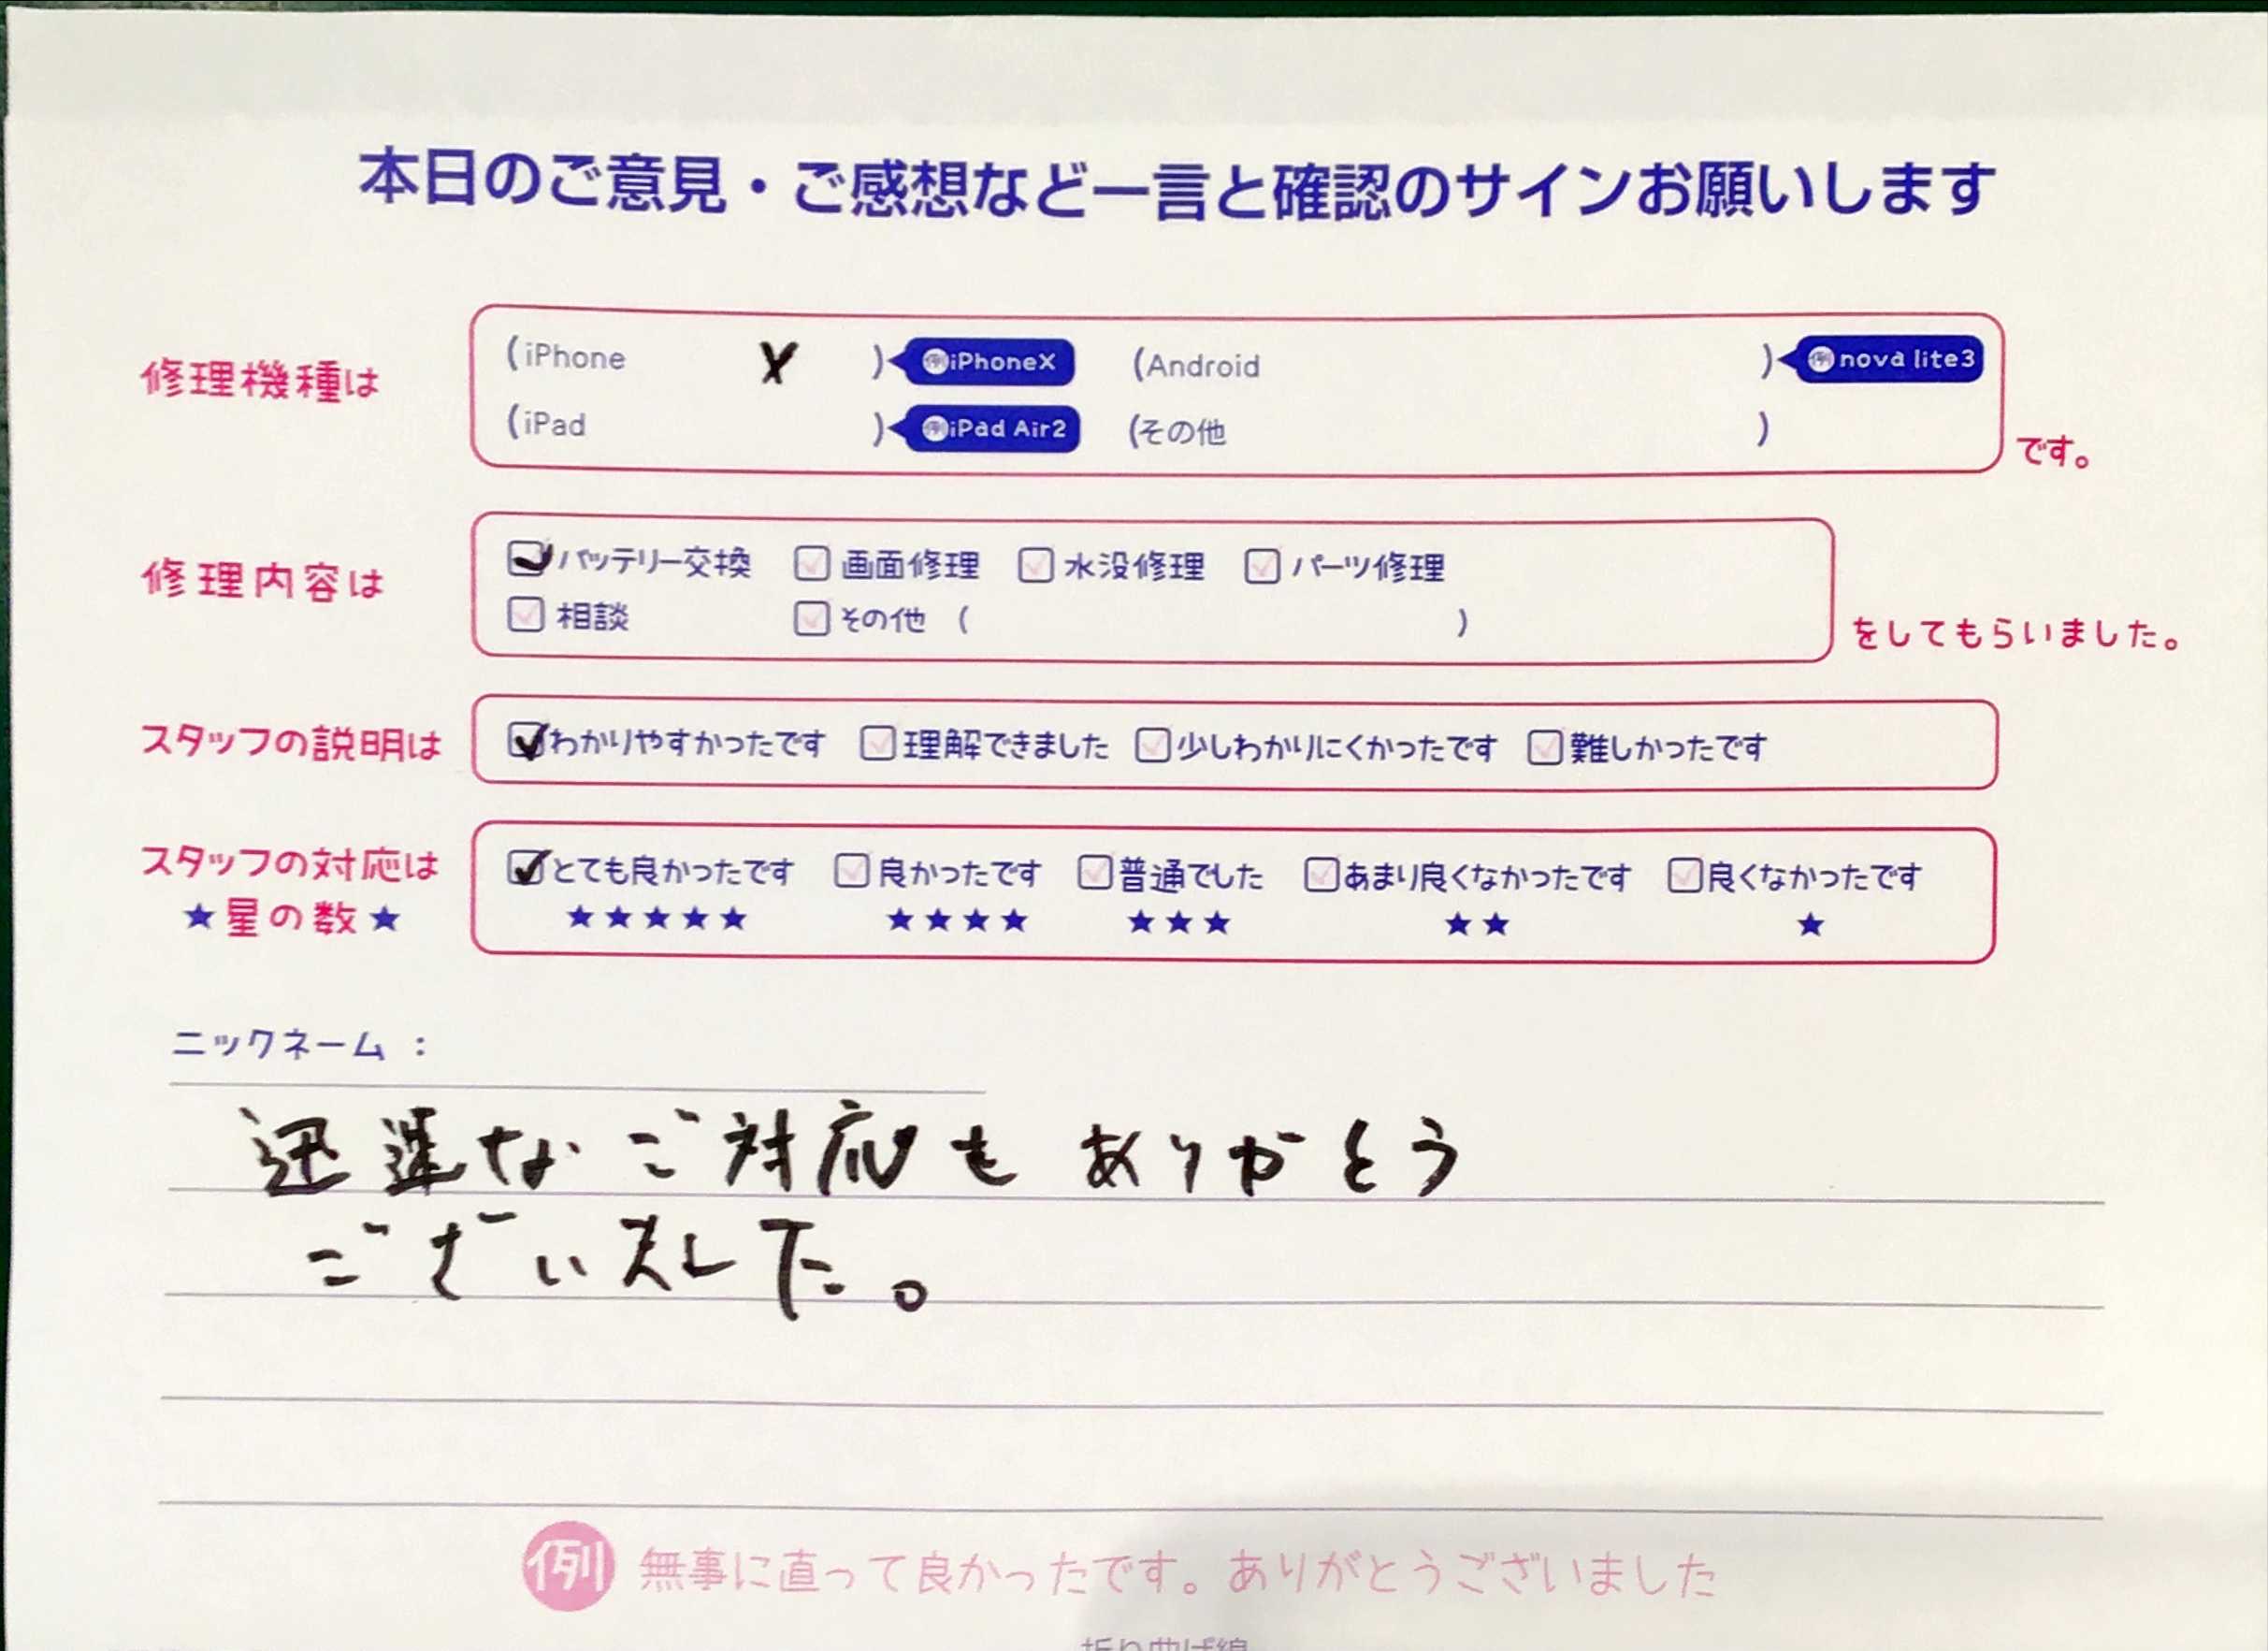 本日のご意見・ご感想など一言と確認のサインお願いします
修理機種は
(iPhone X ) 例iPhoneX (Android ) 例nova lite3
(iPad ) 例iPad Air2 (その他 )
です。
修理内容は
バッテリー交換 画面修理 水没修理 パーツ修理
相談 その他 ( )
をしてもらいました。
スタッフの説明は
わかりやすかったです 理解できました 少しわかりにくかったです 難しかったです
スタッフの対応は
★星の数★
とても良かったです 良かったです 普通でした あまり良くなかったです 良くなかったです
★★★★★ ★★★★ ★★★ ★★ ★
ニックネーム：
迅速なご対応もありがとう
ございました。
例 無事に直って良かったです。ありがとうございました
折り曲げ線